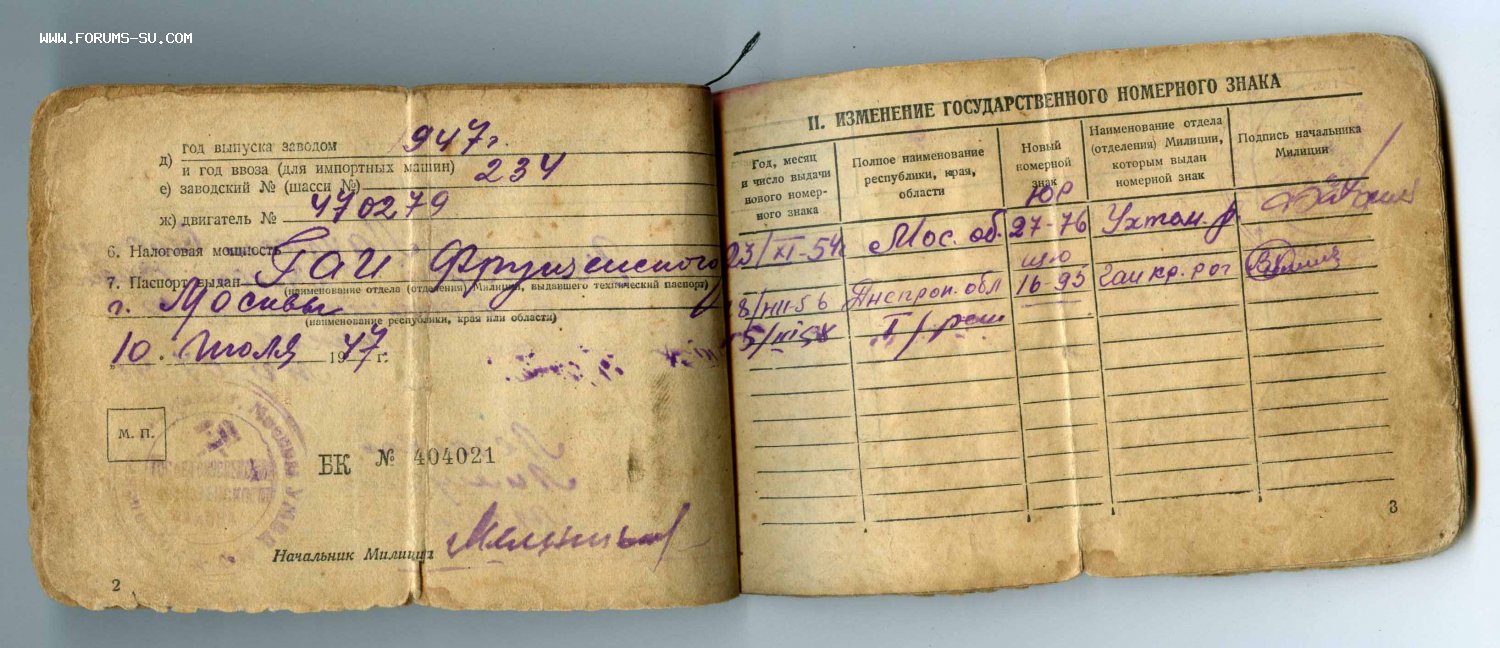 WWW.FORUMS-SU.COM
д) год выпуска заводом 947г.
и год ввоза (для импортных машин)
е) заводский № (шасси №) 234
ж) двигатель № 470279
6. Налоговая мощность
7. Паспорт выдан ГАИ Фрунзенского
(наименование отдела (отделения) Милиции, выдавшего технический паспорт)
г. Москвы
(наименование республики, края или области)
„10. Июля 1947 г.
М. П.
БК № 404021
Начальник Милиции
2
II. ИЗМЕНЕНИЕ ГОСУДАРСТВЕННОГО НОМЕРНОГО ЗНАКА
Год, месяц и число выдачи нового номерного знака
Полное наименование республики, края, области
Новый номерной знак
Наименование отдела (отделения) Милиции, которым выдан номерной знак
Подпись начальника Милиции
23/XI-54г Мос. об. ЮР 27-76 Ухтом.
8/VII-56 Днепроп. обл що 16-95 Гаи кр. рог
3